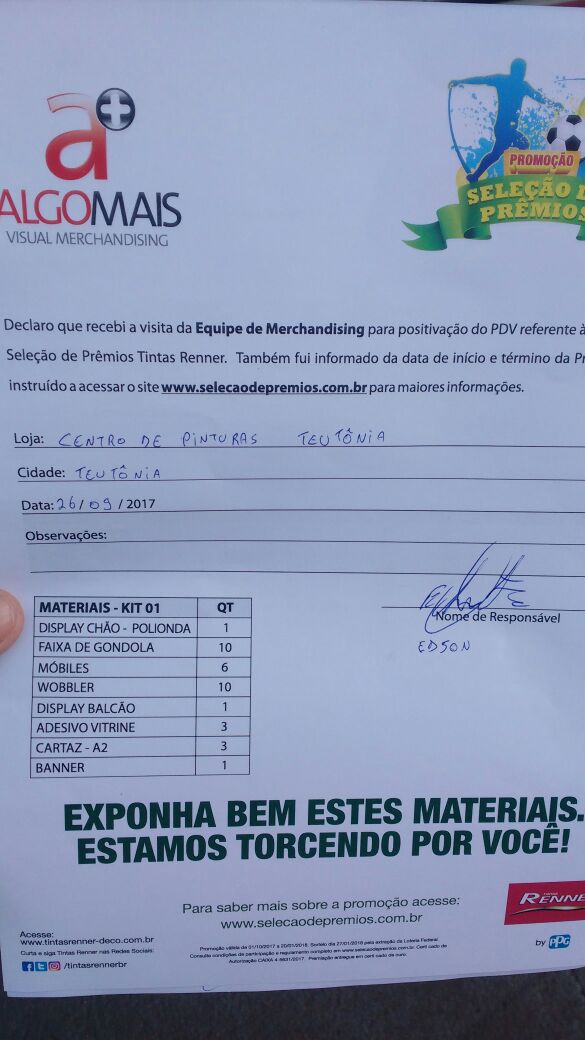 a+
ALGOMAIS
VISUAL MERCHANDISING
PROMOÇÃO
SELEÇÃO D
PRÊMIOS
Declaro que recebi a visita da Equipe de Merchandising para positivação do PDV referente à
Seleção de Prêmios Tintas Renner. Também fui informado da data de início e término da Pr
instruído a acessar o site www.selecaodepremios.com.br para maiores informações.
Loja: CENTRO DE PINTURAS TEUTÔNIA
Cidade: TEUTÔNIA
Data: 26/09/2017
Observações:
Nome de Responsável
EDSON
MATERIAIS - KIT 01 QT
DISPLAY CHÃO - POLIONDA 1
FAIXA DE GONDOLA 10
MÓBILES 6
WOBBLER 10
DISPLAY BALCÃO 1
ADESIVO VITRINE 3
CARTAZ - A2 3
BANNER 1
EXPONHA BEM ESTES MATERIAIS.
ESTAMOS TORCENDO POR VOCÊ!
Para saber mais sobre a promoção acesse:
www.selecaodepremios.com.br
TINTAS
RENNE
by PPG
Acesse:
www.tintasrenner-deco.com.br
Curta e siga Tintas Renner nas Redes Sociais:
/tintasrennerbr
Promoção válida de 01/10/2017 a 20/01/2018. Sorteio dia 27/01/2018 pela extração da Loteria Federal.
Consulte condições de participação e regulamento completo em www.selecaodepremios.com.br. Certificado de
Autorização CAIXA 4-6631/2017. Premiação entregue em certificado de ouro.